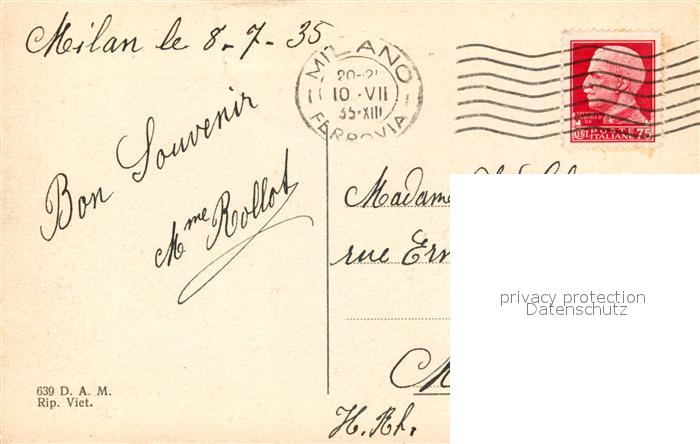 Milan le 8-7-35
MILANO
20-21
10·VII
35-XIII
FERROVIA
Bon Souvenir
Mme Rollot
POSTE
CENT. ITALIANE 75
Madame
rue Ern
M
H. Rh.
privacy protection
Datenschutz
639 D. A. M.
Rip. Viet.